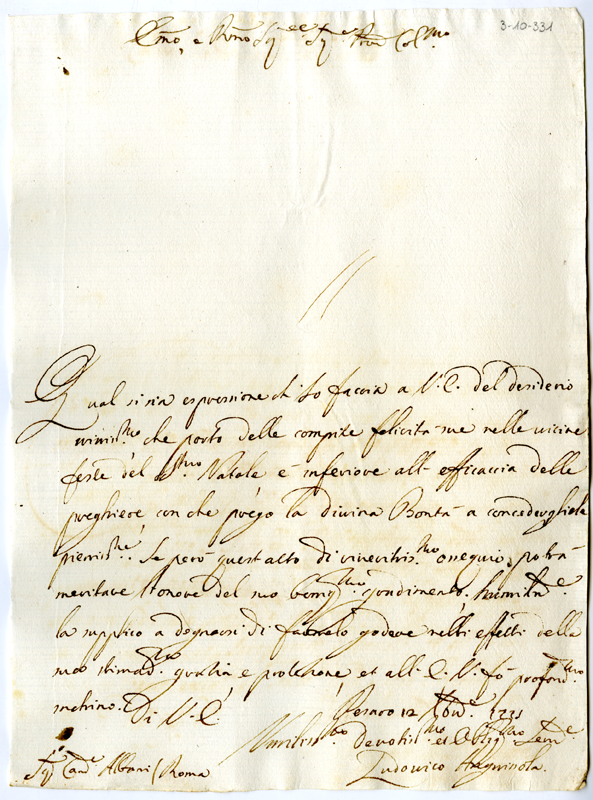 3-10-331
Em̃o, e Rm̃o Sig.re Sig.re Pron Col.mo
Qual si sia espressione ch'Io faccia a V. E. del desiderio
vivis.mo che porto delle compite felicità sue nelle vicine
feste del S.mo Natale è inferiore all'efficaccia delle
preghiere con che prego la divina Bontà a concedergliele
pieniss.me. Se però quest'atto di riveritis.mo ossequio potrà
meritare l'onore del suo benig.mo gradimento, humilm.e
la supplico a degnarsi di farmelo godere nelli effetti della
sua stimad.ma gratia e protezione, et all'E. V. fò profond.mo
inchino. Di V. E.
Pesaro 12 Xbre 1731
Umiliss.mo Devotis.mo et Oblig.mo Ser.e
Ludovico
Sig. Card.e Albani / Roma